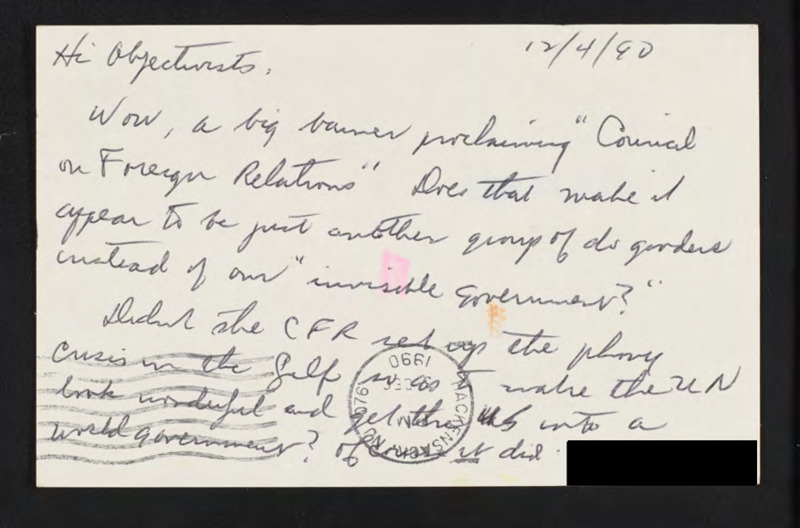 12/4/90
Hi Objectivists,
Wow, a big banner proclaiming "Council
on Foreign Relations" Does that make it
appear to be just another group of do gooders
instead of our "invisible government?"
Didn't the CFR set up the phony
crisis in the Gulf so as to make the UN
look wonderful and get the US into a
world government? Of course it did.
HACKENSACK, NJ 076
DEC
1990